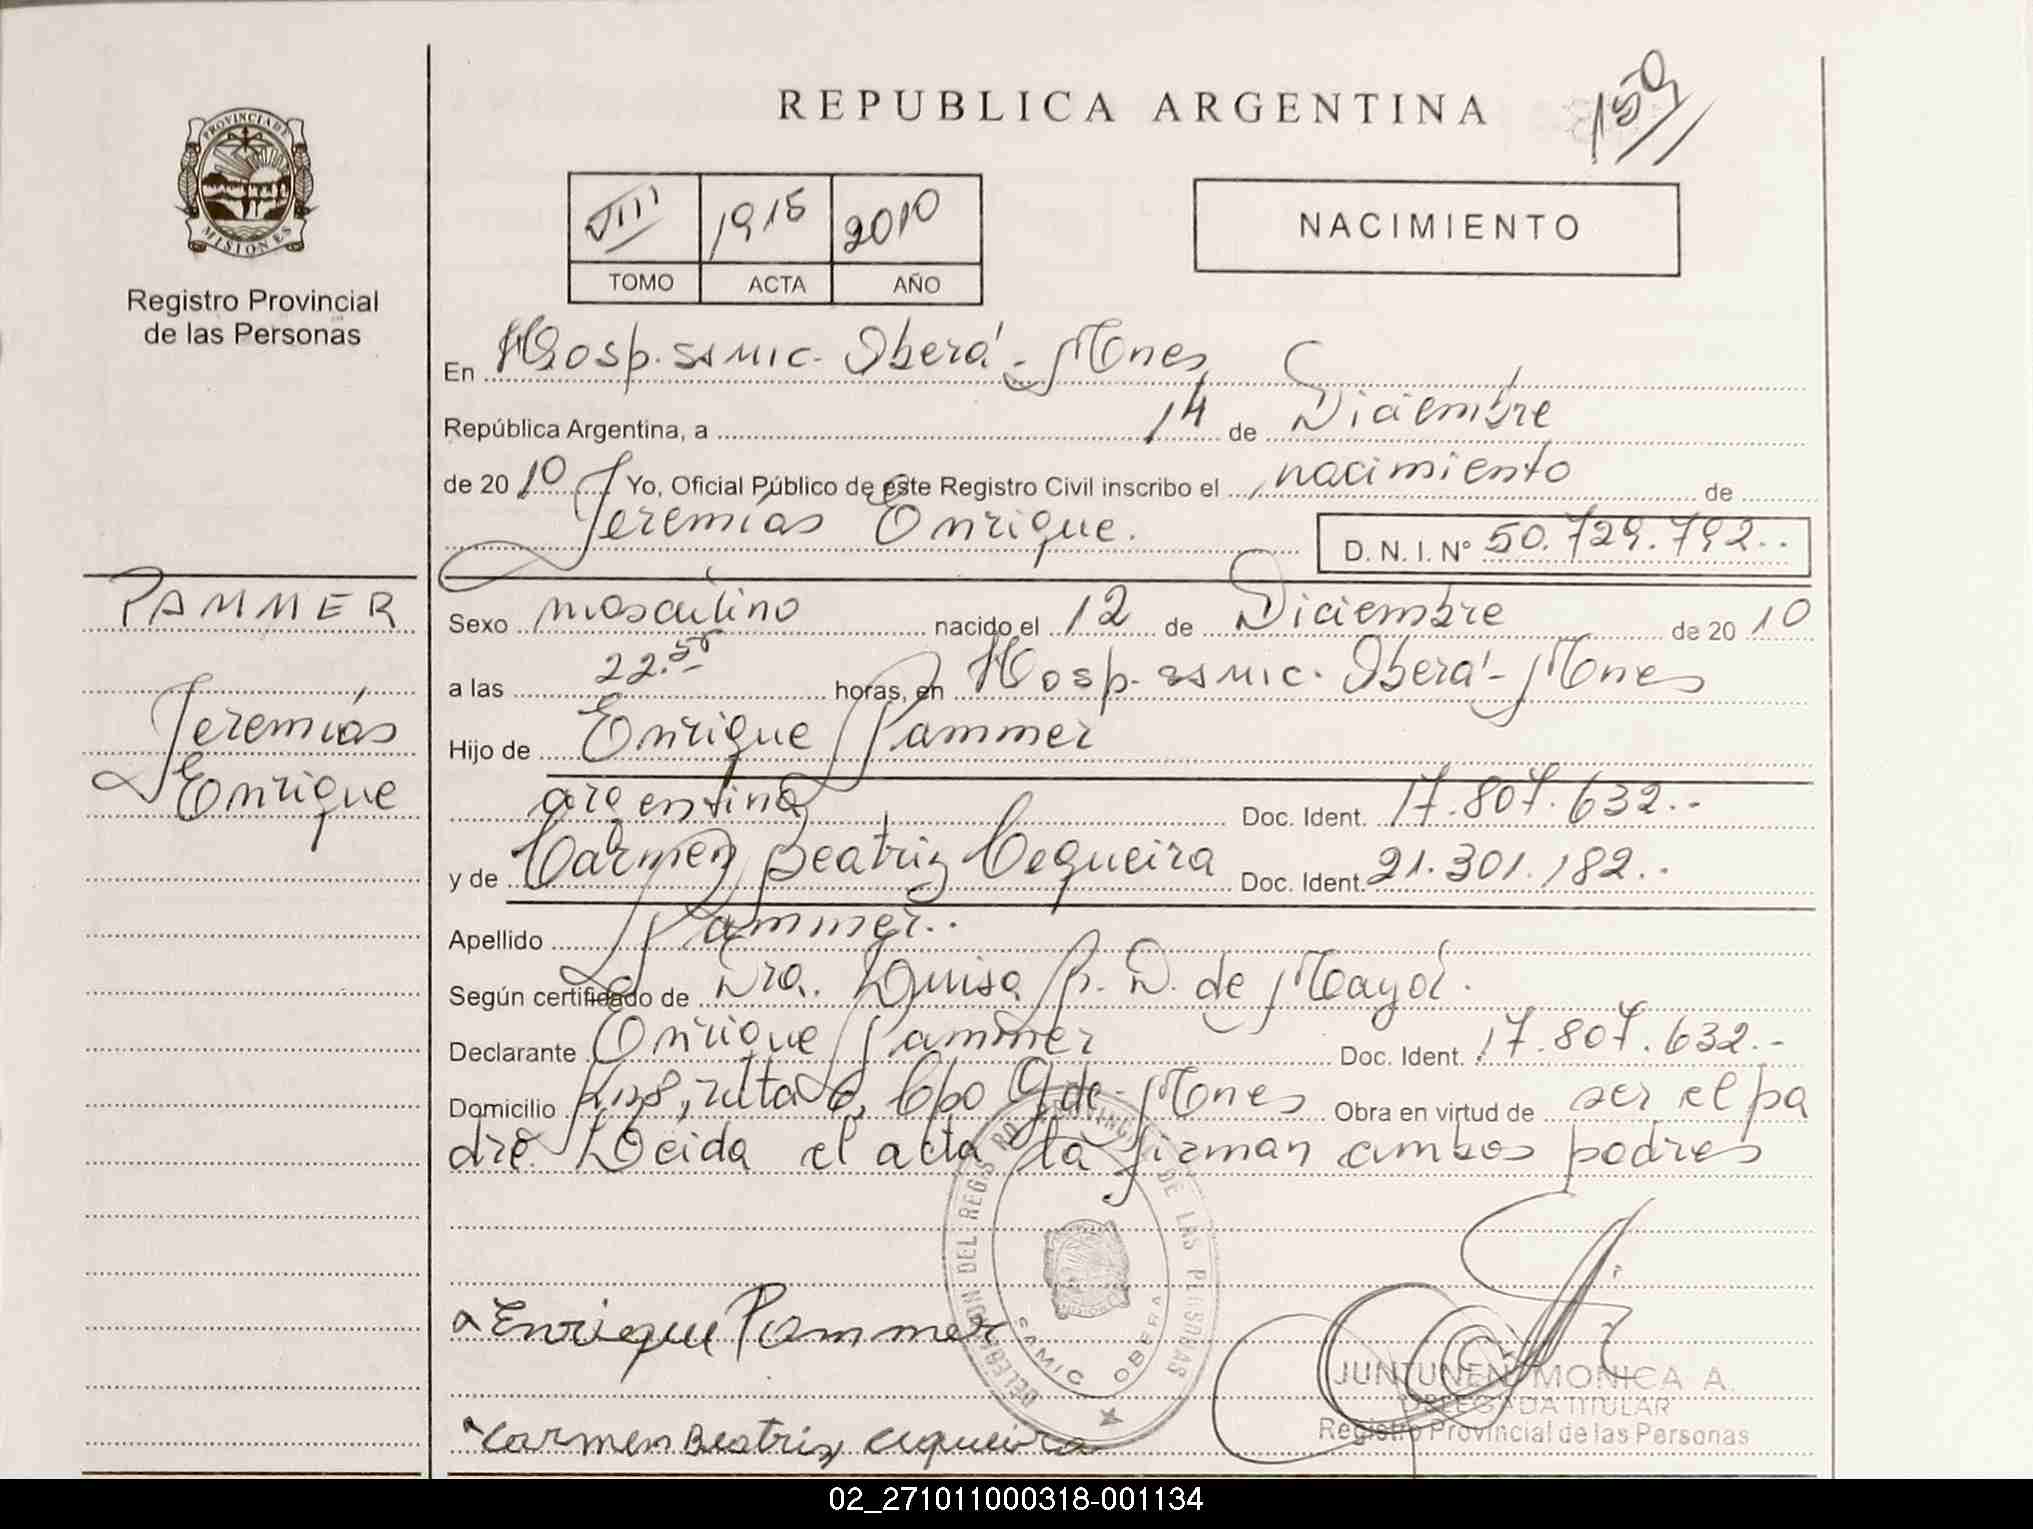 REPUBLICA ARGENTINA
159
PROVINCIA DE
MISIONES
Registro Provincial
de las Personas
VIII 1915 2010
TOMO ACTA AÑO
NACIMIENTO
En Hosp. SAMIC. Oberá - Mnes
República Argentina, a 14 de Diciembre
de 2010 Yo, Oficial Público de este Registro Civil inscribo el nacimiento de
Jeremías Enrique.
D. N. I. Nº 50.729.792..
PAMMER
Jeremías
Enrique
Sexo masculino nacido el 12 de Diciembre de 2010
a las 22.55 horas, en Hosp. SAMIC. Oberá - Mnes
Hijo de Enrique Pammer
argentina Doc. Ident. 17.807.632.-
y de Carmen Beatriz Cequeira Doc. Ident. 21.301.182..
Apellido Pammer..
Según certificado de Dra. Luisa P. D. de Mayol.
Declarante Enrique Pammer Doc. Ident. 17.807.632.-
Domicilio Cpo Gde - Mnes Obra en virtud de ser el pa
dre. Leida el acta la firman ambos padres
DELEGACION DEL REGISTRO PROVINCIAL DE LAS PERSONAS
SAMIC OBERA
Enrique Pammer
JUNTUNEN MONICA A.
DELEGADA TITULAR
Registro Provincial de las Personas
Carmen Beatriz Cequeira
02_271011000318-001134